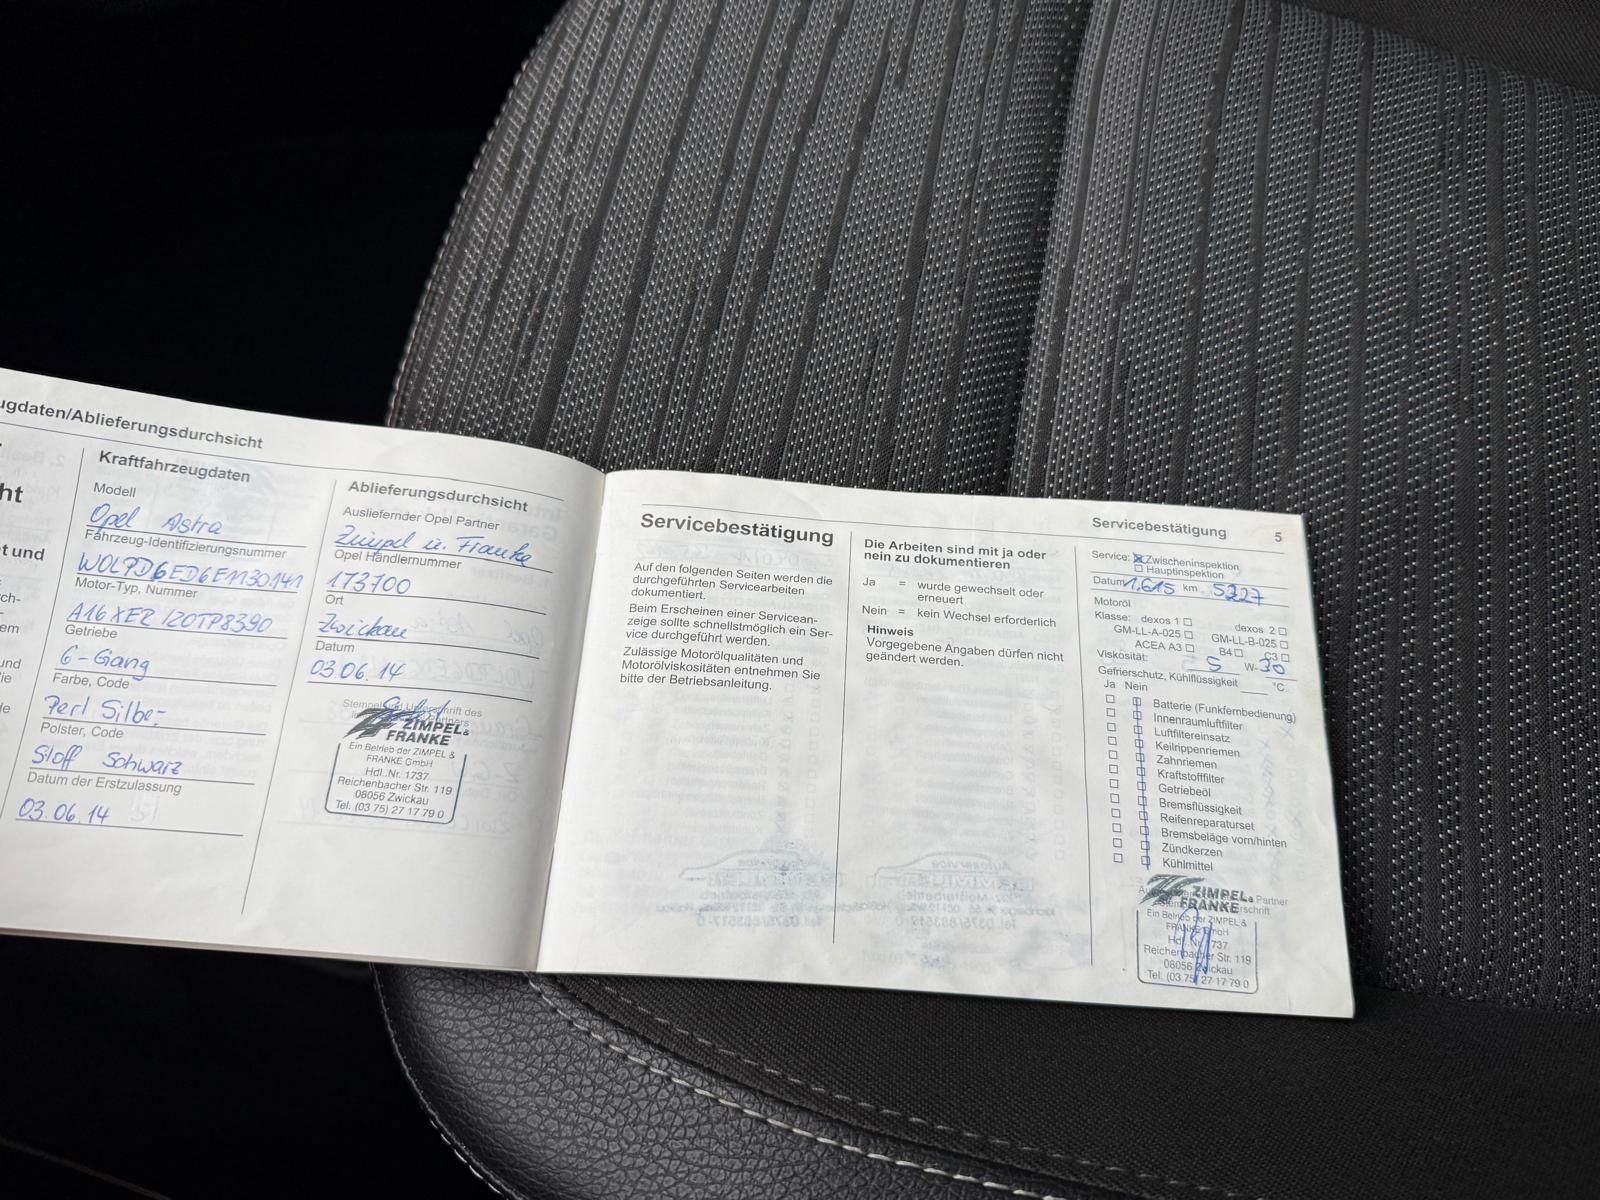 ugdaten/Ablieferungsdurchsicht
ht
t und
em
und
Kraftfahrzeugdaten
Modell
Opel Astra
Fahrzeug-Identifizierungsnummer
W0LPD6ED6E1130141
Motor-Typ, Nummer
A16XER 120TP8390
Getriebe
6-Gang
Farbe, Code
Perl Silber
Polster, Code
Stoff Schwarz
Datum der Erstzulassung
03.06.14
Ablieferungsdurchsicht
Ausliefernder Opel Partner
Zimpel u. Franke
Opel Händlernummer
1T3700
Ort
Zwickau
Datum
03.06.14
Stempel und Unterschrift des
ZIMPEL &
FRANKE
Ein Betrieb der ZIMPEL &
FRANKE GmbH
Hdl.-Nr. 1737
Reichenbacher Str. 119
08056 Zwickau
Tel. (03 75) 27 17 79 0
Servicebestätigung
Auf den folgenden Seiten werden die
durchgeführten Servicearbeiten
dokumentiert.
Beim Erscheinen einer Servicean-
zeige sollte schnellstmöglich ein Ser-
vice durchgeführt werden.
Zulässige Motorölqualitäten und
Motorölviskositäten entnehmen Sie
bitte der Betriebsanleitung.
Die Arbeiten sind mit ja oder
nein zu dokumentieren
Ja = wurde gewechselt oder
erneuert
Nein = kein Wechsel erforderlich
Hinweis
Vorgegebene Angaben dürfen nicht
geändert werden.
Servicebestätigung 5
Service: Zwischeninspektion
Hauptinspektion
Datum 1.6.15 km 5227
Motoröl
Klasse: dexos 1 dexos 2
GM-LL-A-025 GM-LL-B-025
ACEA A3 B4 C3
Viskosität: 5 W-30
Gefrierschutz, Kühlflüssigkeit °C
Ja Nein
Batterie (Funkfernbedienung)
Innenraumluftfilter
Luftfiltereinsatz
Keilrippenriemen
Zahnriemen
Kraftstofffilter
Getriebeöl
Bremsflüssigkeit
Reifenreparaturset
Bremsbeläge vorn/hinten
Zündkerzen
Kühlmittel
ZIMPEL &
FRANKE
Ein Betrieb der ZIMPEL &
FRANKE GmbH
Hdl.-Nr. 1737
Reichenbacher Str. 119
08056 Zwickau
Tel. (03 75) 27 17 79 0